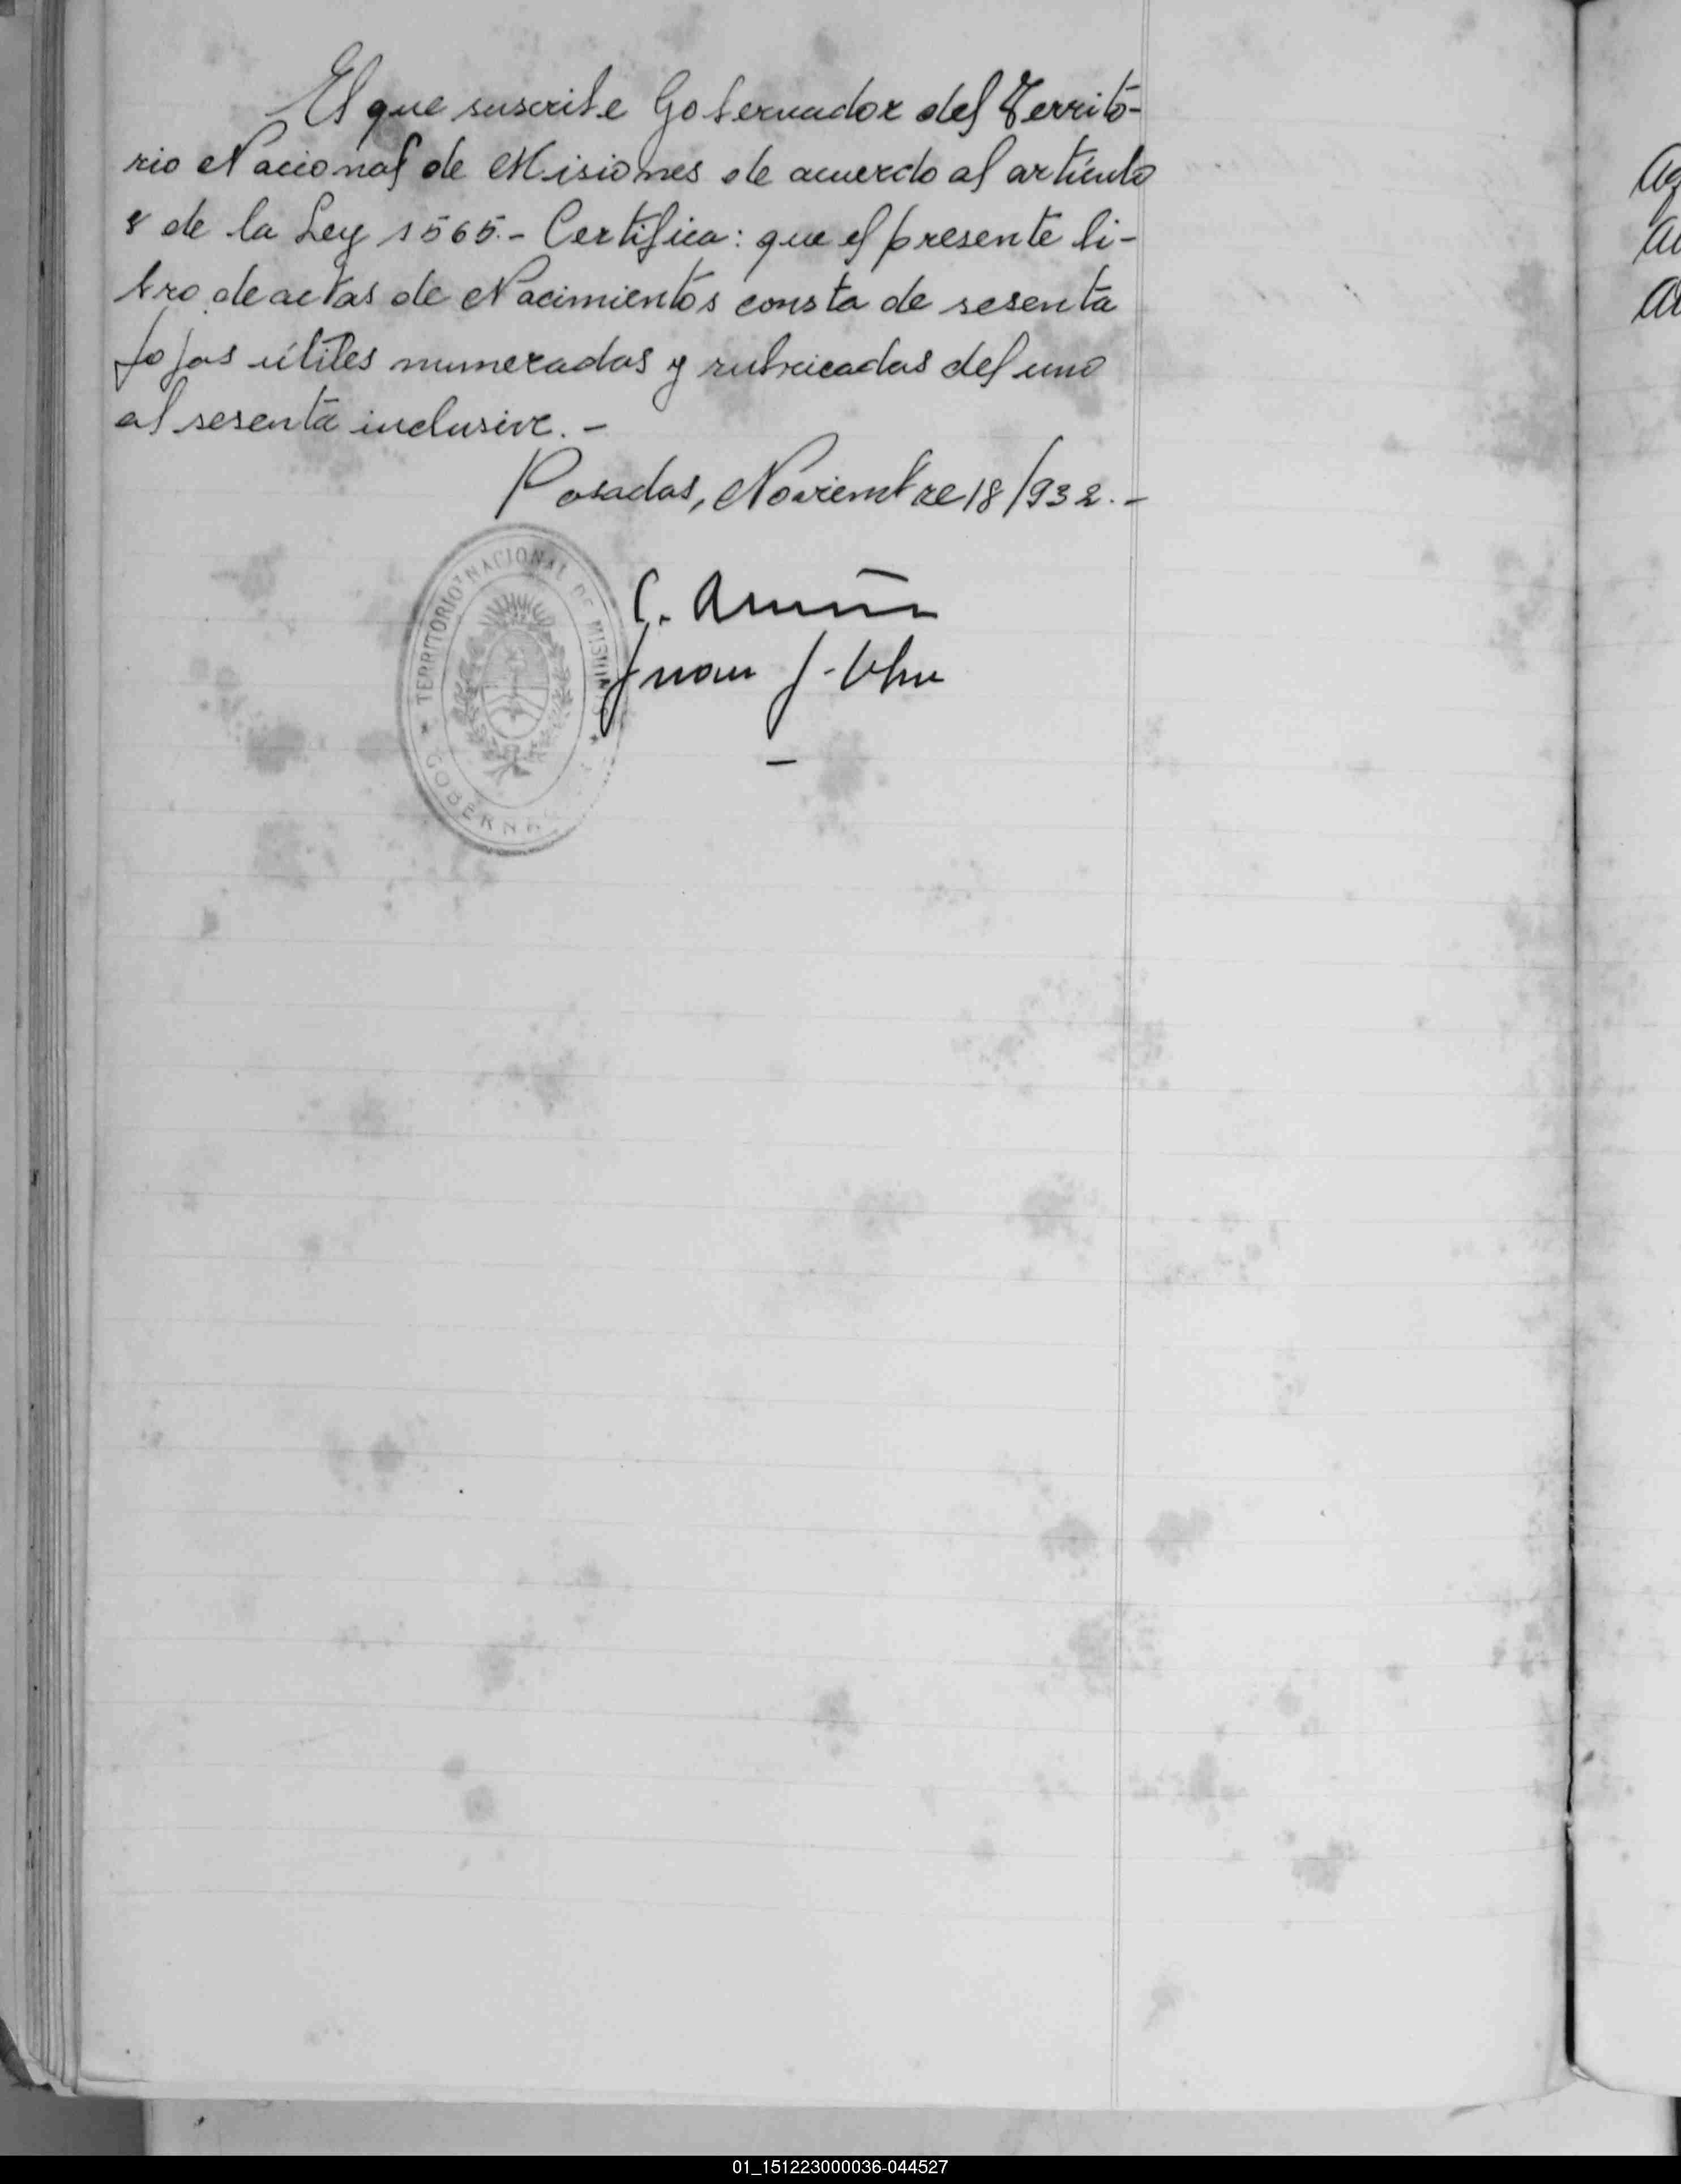 El que suscribe Gobernador del Territo-
rio Nacional de Misiones de acuerdo al artículo
8 de la Ley 1565.- Certifica: que el presente li-
bro de actas de Nacimientos consta de sesenta
fojas útiles numeradas y rubricadas del uno
al sesenta inclusive.-
Posadas, Noviembre 18/932.-
TERRITORIO NACIONAL DE MISIONES
C.
Juan J.
01_151223000036-044527